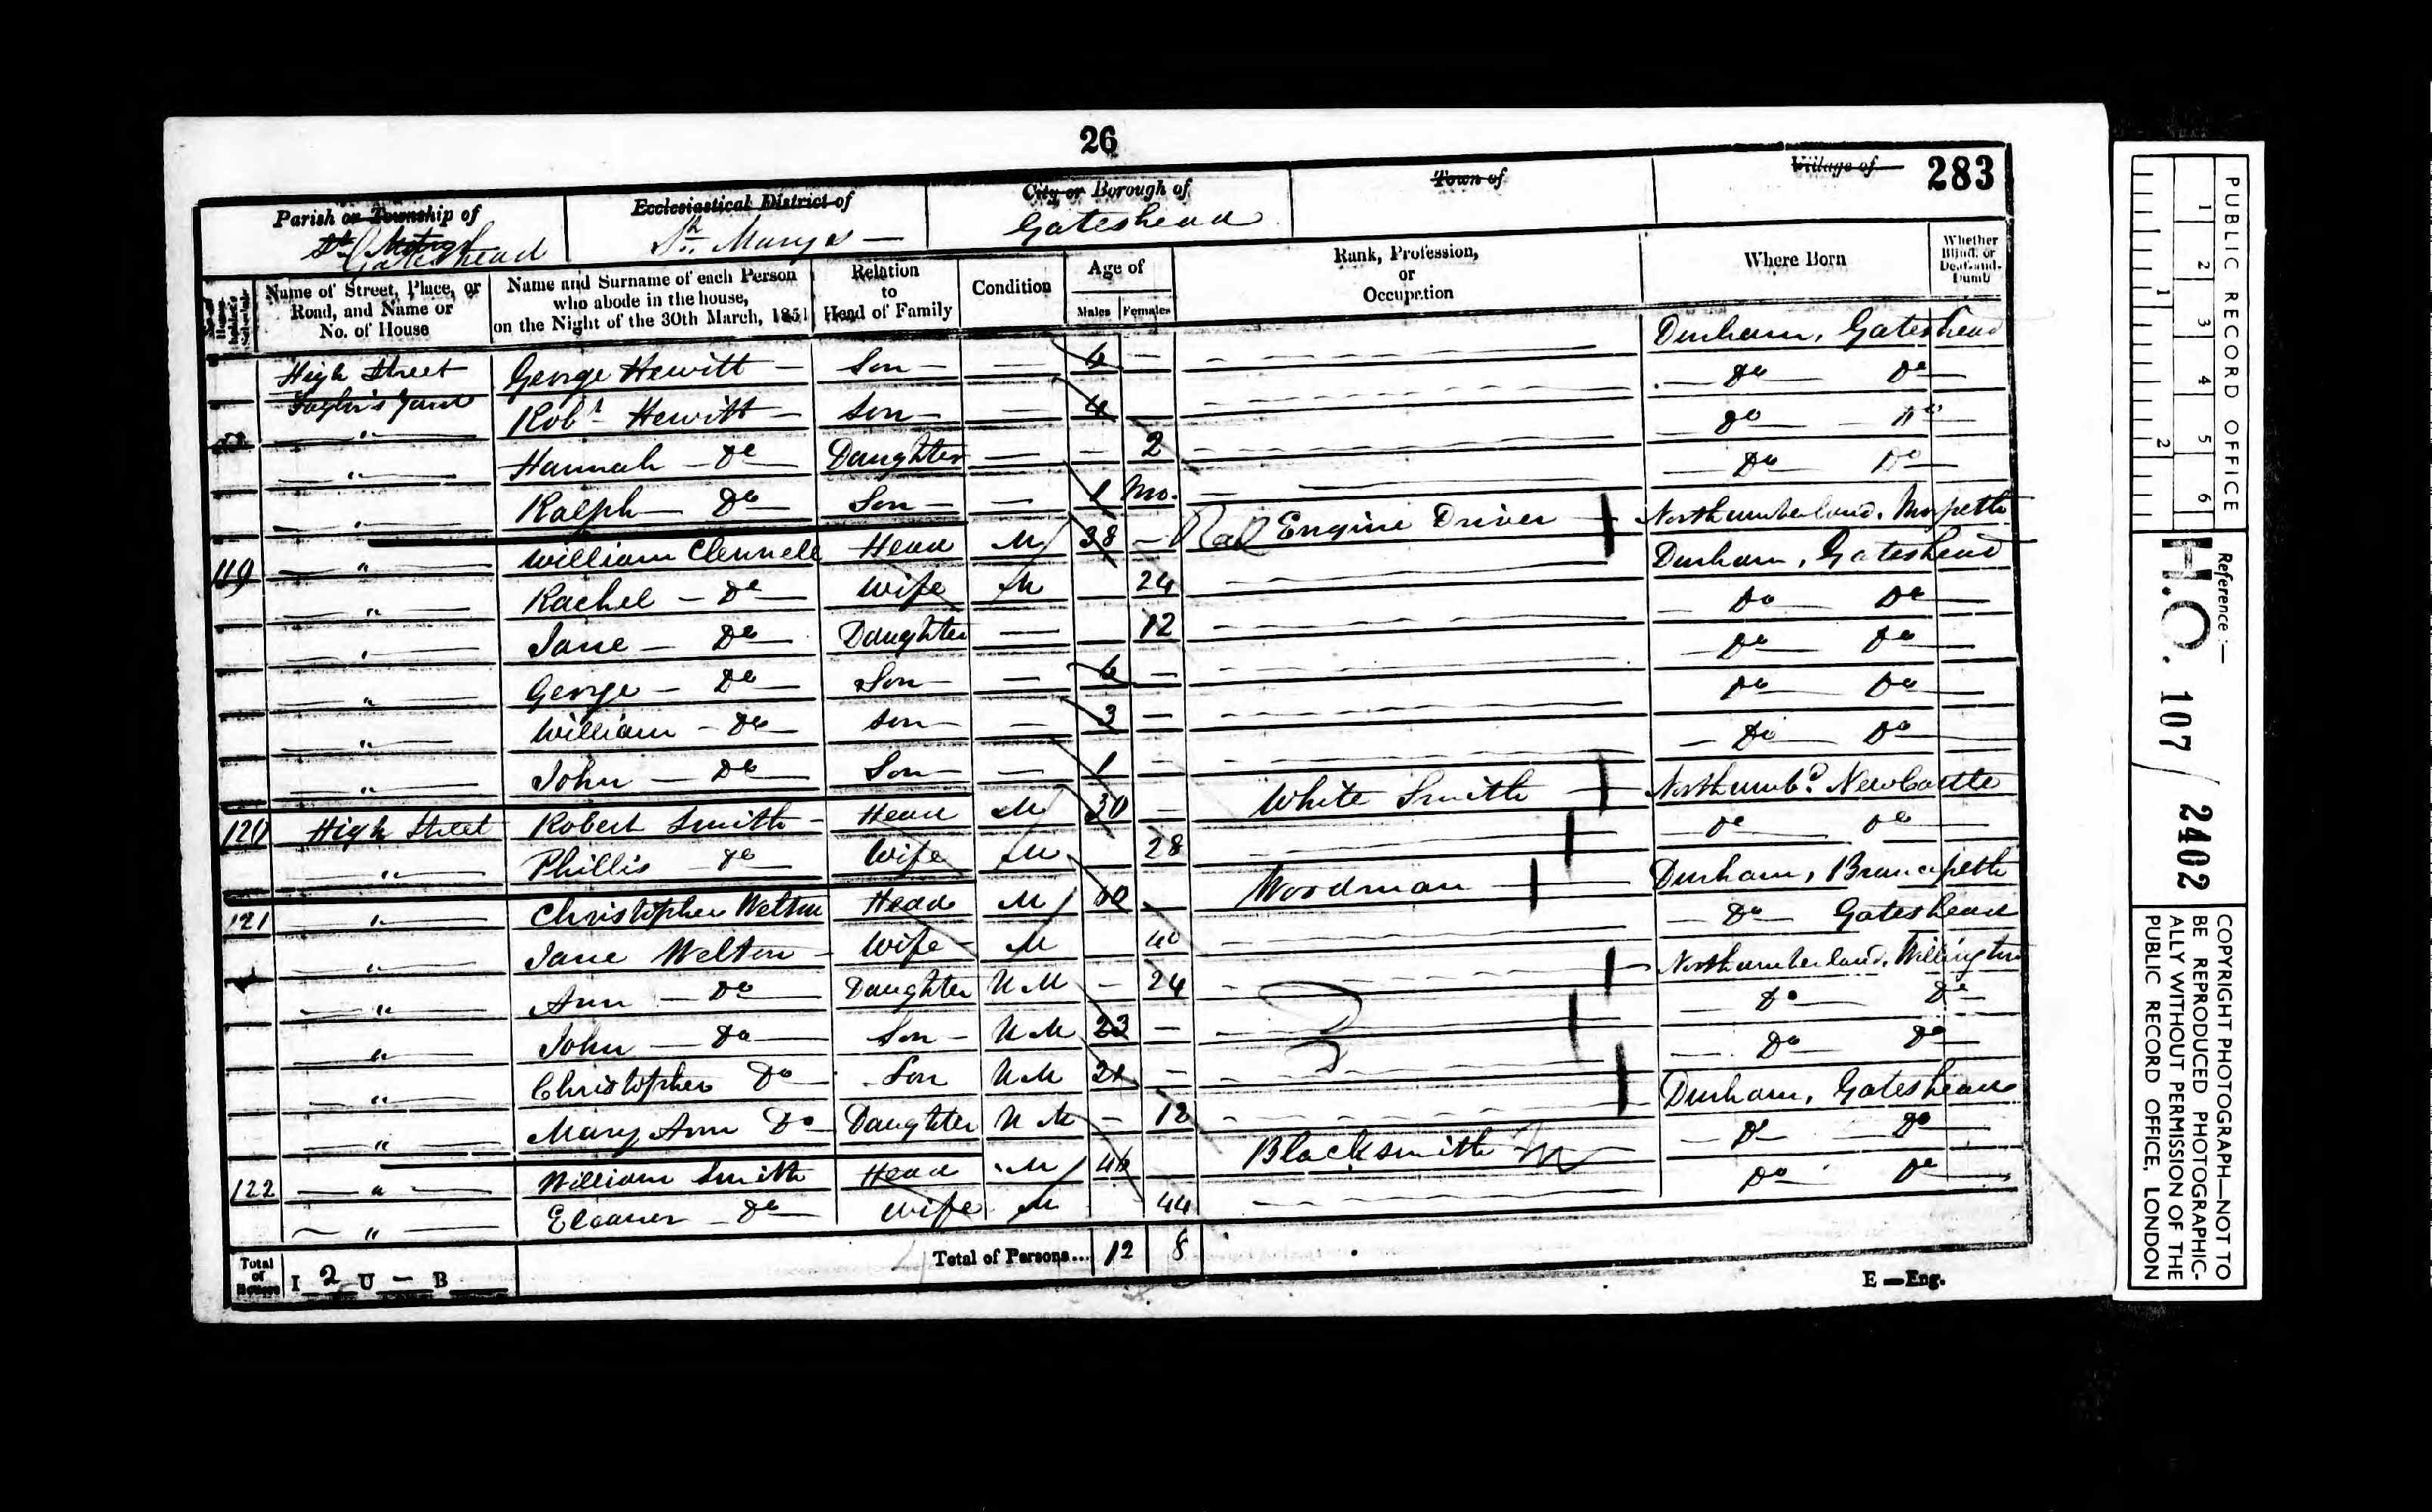 26
283
Parish or Township of
Gateshead
Ecclesiastical District of
St. Mary's —
City or Borough of
Gateshead
Town of
Village of
Name of Street, Place, or Road, and Name or No. of House
Name and Surname of each Person who abode in the house, on the Night of the 30th March, 1851
Relation to Head of Family
Condition
Age of
Males Females
Rank, Profession, or Occupation
Where Born
Whether Blind, or Deaf-and-Dumb
High Street George Hewitt — Son — 6 — Durham, Gateshead
Taylor's Yard Robt Hewitt — Son — 4 Do Do
" Hannah — Do Daughter — — 2 Do Do
" Ralph — Do Son — 1 Mo. Do Do
119 " William Clennell Head M 38 — Engine Driver Northumberland, Morpeth
" Rachel — Do Wife M 24 Durham, Gateshead
" Jane — Do Daughter — 12 Do Do
" George — Do Son — 6 — Do Do
" William — Do Son — 3 — Do Do
" John — Do Son — 1 — Do Do
120 High Street Robert Smith — Head M 30 — White Smith Northumbd. Newcastle
" Phillis — Do Wife M 28 Do Do
121 " Christopher Welton Head M Woodman Durham, Brancepeth
" Jane Welton — Wife — M 40 Do Gateshead
" Ann — Do Daughter U M — 24 Northumberland, Willington
" John — Do Son — U M 23 — Do Do
" Christopher Do Son U M 21 — Do Do
" Mary Ann Do Daughter U M — 12 Durham, Gateshead
122 " William Smith Head M 46 Blacksmith Do Do
" Eleaner — Do Wife M 44 Do Do
Total of Houses I 2 U — B
Total of Persons... 12 8
E—Eng.
PUBLIC RECORD OFFICE
1 2 3 4 5 6
1 2
Reference:—
H.O. 107/2402
COPYRIGHT PHOTOGRAPH—NOT TO
BE REPRODUCED PHOTOGRAPHIC-
ALLY WITHOUT PERMISSION OF THE
PUBLIC RECORD OFFICE, LONDON